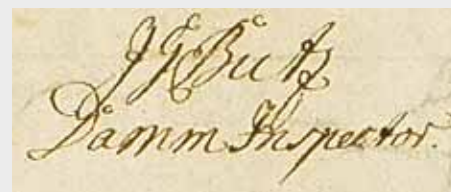 J G Butz
Damm Inspector.